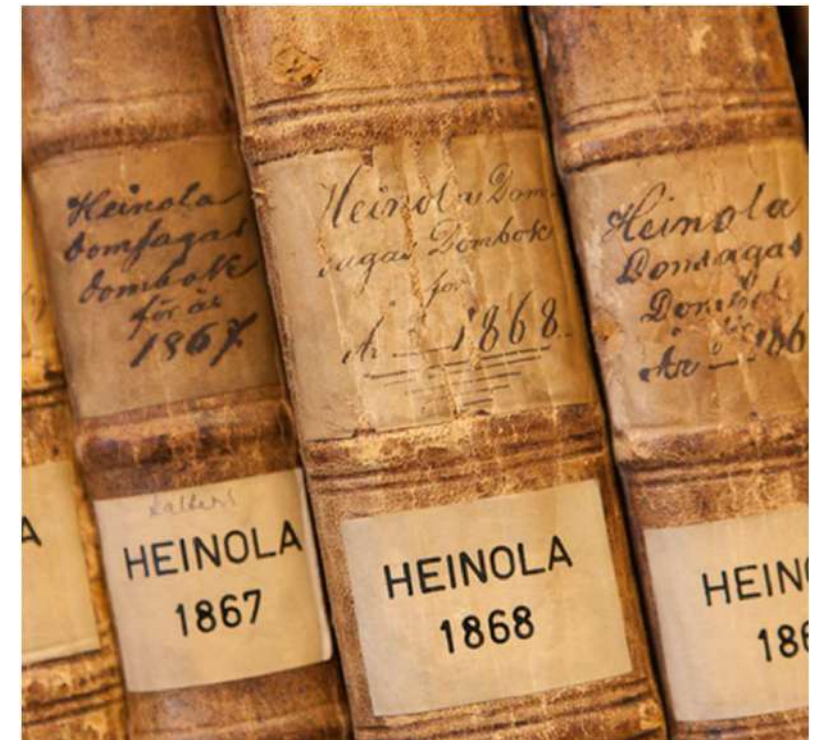 A
Heinola
domsagas
dombok
för år
1867
Kallers
HEINOLA
1867
Heinola Dom
sagas Dombok
för
År 1868
HEINOLA
1868
Heinola
Domsagas
Dombok
för
År 186
HEIN
186